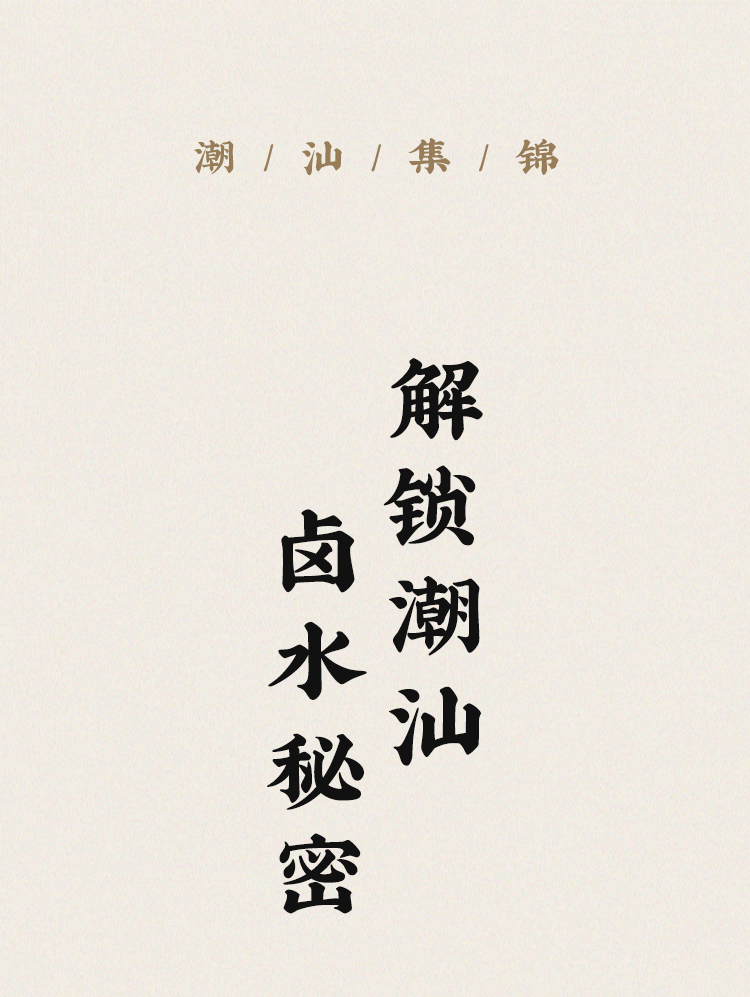 潮/汕/集/锦
解锁潮汕
卤水秘密